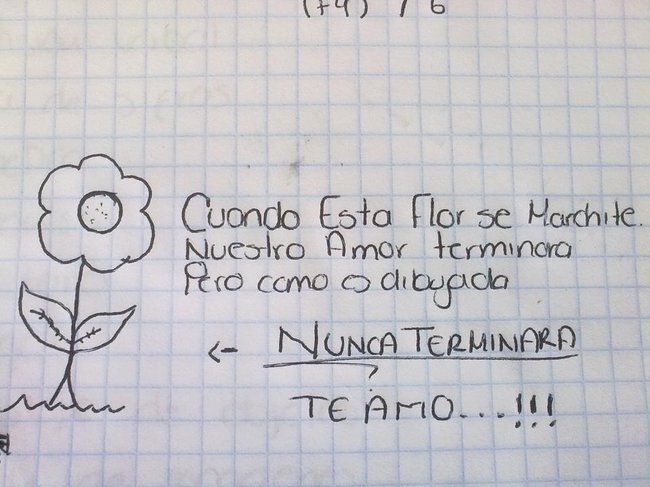 (+4) / 6
Cuando Esta Flor se Marchite.
Nuestro Amor terminara
Pero como es dibujada
← NUNCA TERMINARA
TE AMO...!!!